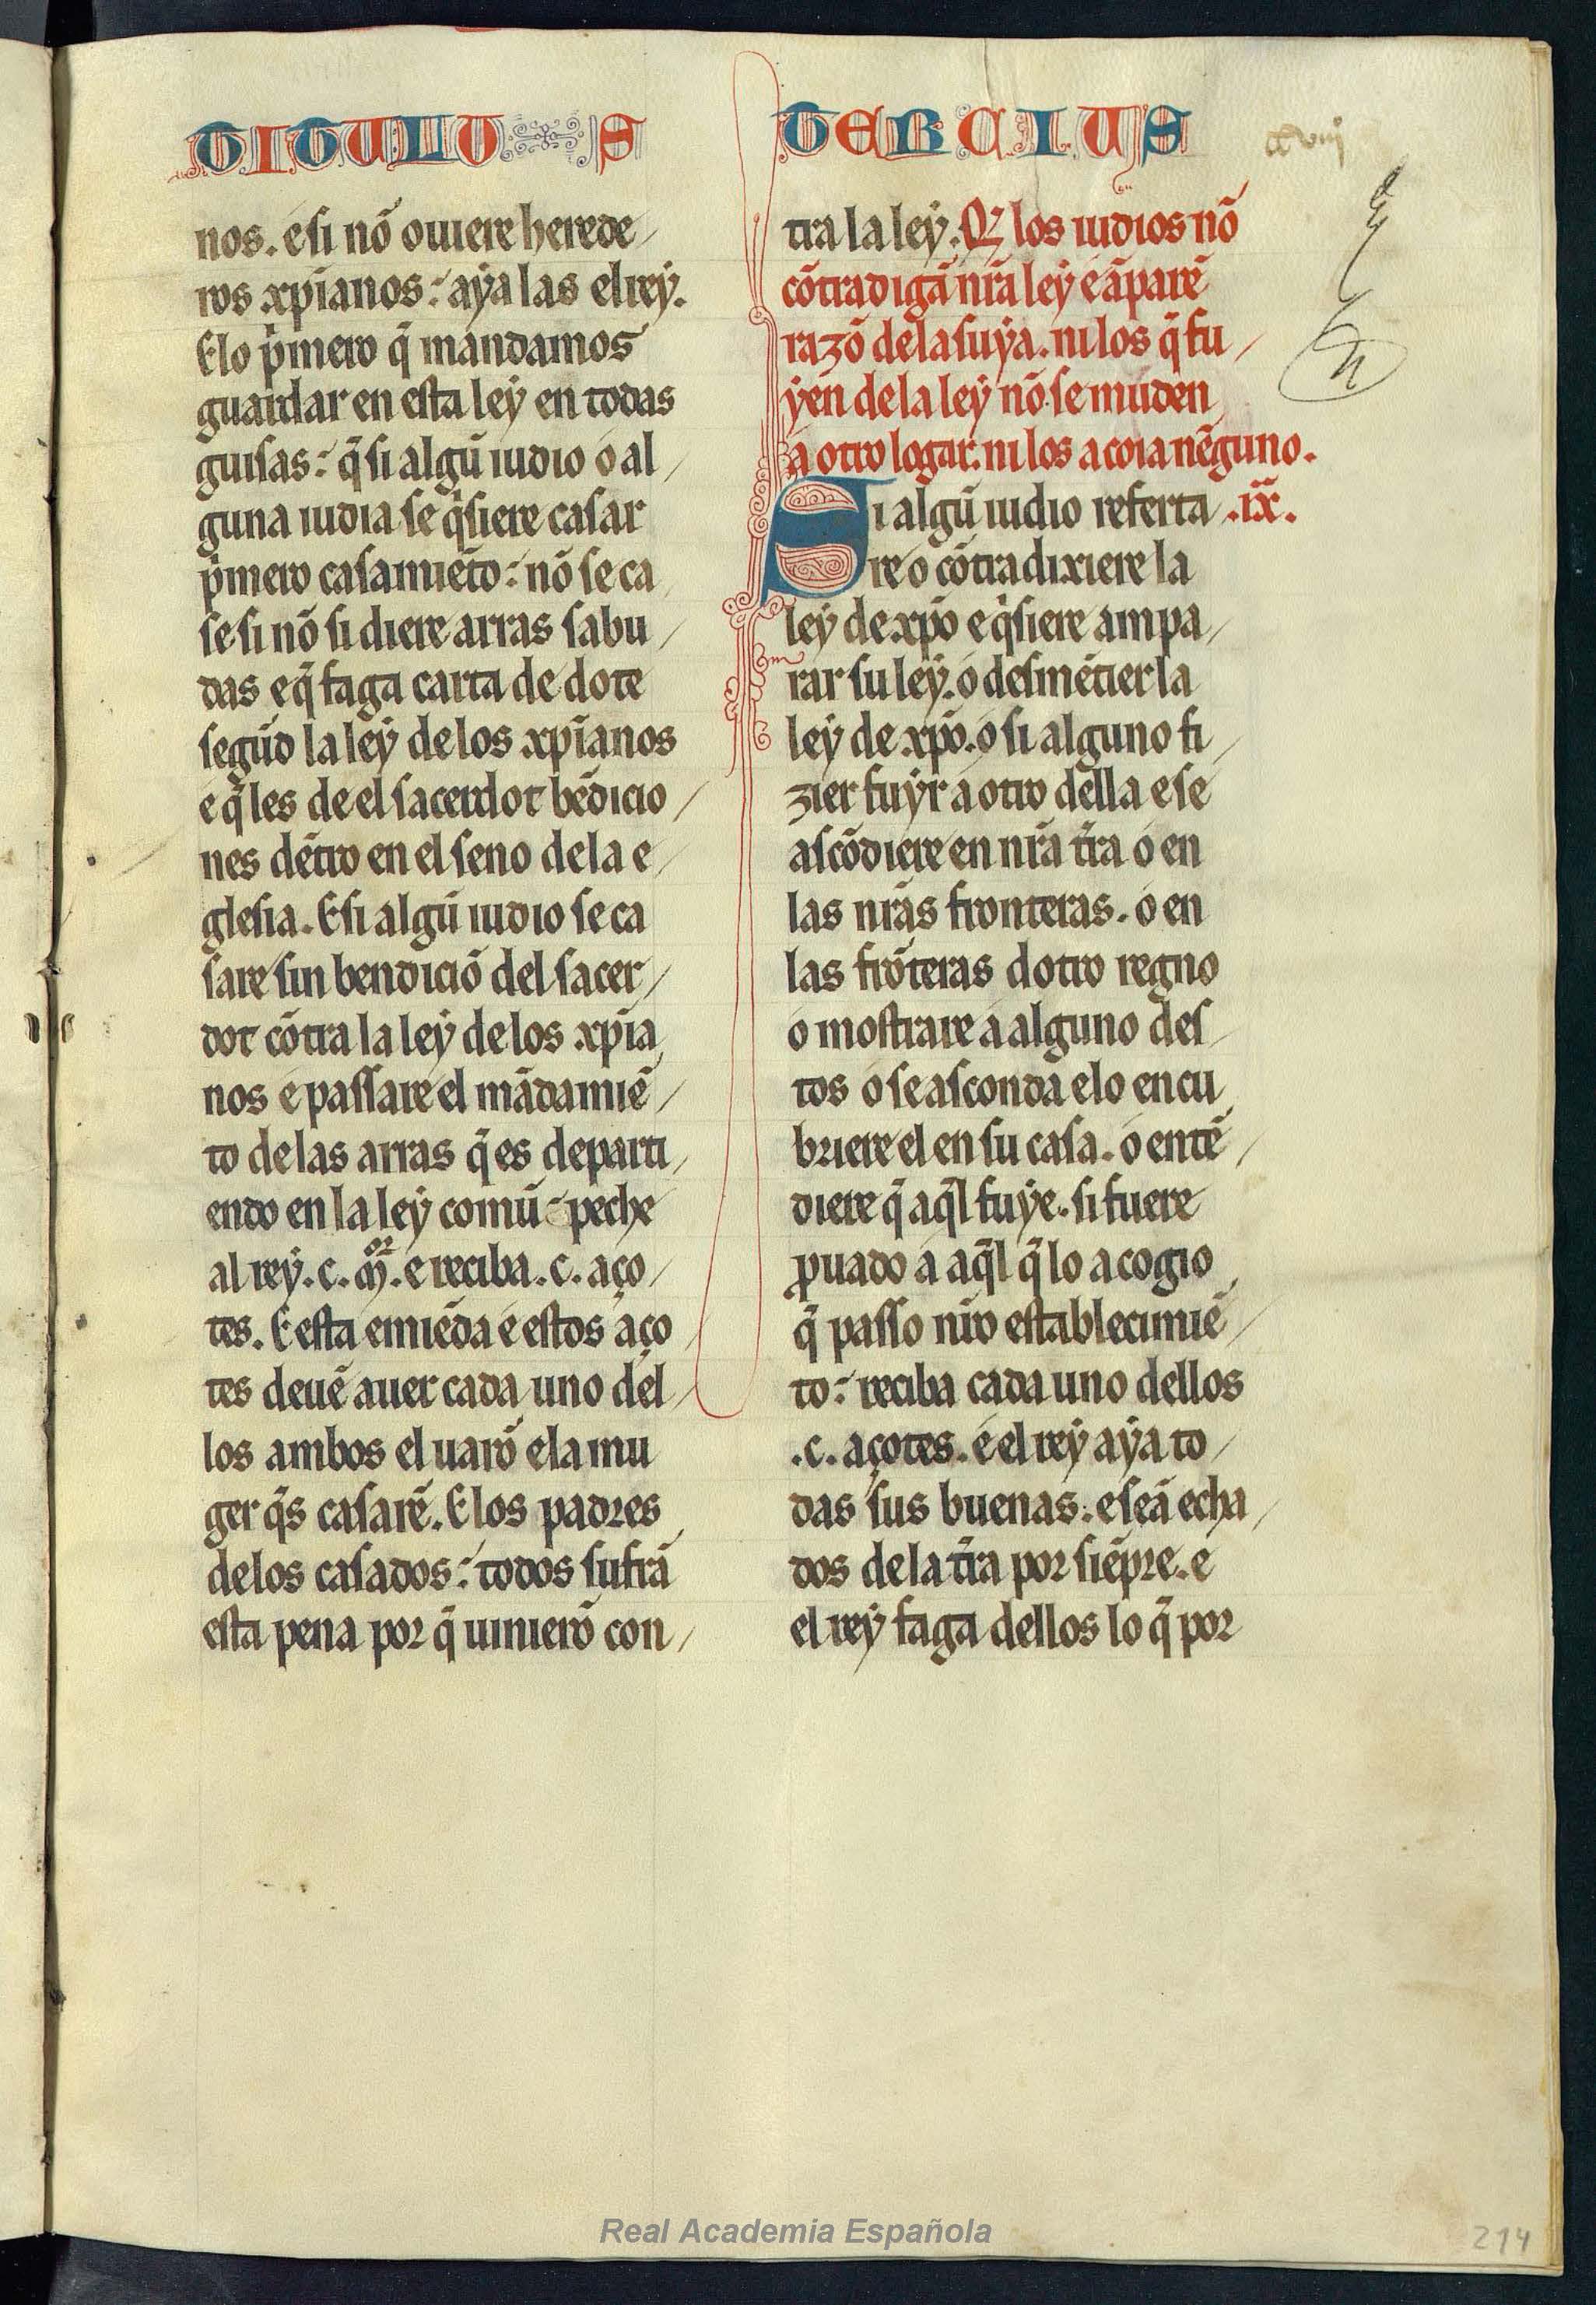 TITULUS
nos. e si nõ ouiere herede
ros xp̃ianos: aẏa las el reẏ.
E lo p̍mero q̃ mandamos
guardar en esta leẏ en todas
guisas: q̃ si algũ iudio o al
guna iudia se q̍siere casar
p̍mero casamiẽto: nõ se ca
se si nõ si diere arras sabu
das e q̃ faga carta de dote
segũd la leẏ de los xp̃ianos
e q̃ les de el sacerdot bẽdicio
nes dẽtro en el seno de la e
glesia. E si algũ iudio se ca
sare sin bendiciõ del sacer
dot cõtra la leẏ de los xp̃ia
nos e passare el mãdamiẽ
to de las arras q̃ es departi
endo en la leẏ comũ: peche
al reẏ .c. m̃or. e reciba .c. aço
tes. E esta emiẽda e estos aço
tes deuẽ auer cada uno del
los ambos el uarõ e la mu
ger q̃s casarẽ. E los padres
de los casados: todos sufrã
esta pena por q̃ uinierõ con
TERCIUS
tra la leẏ. Q̃ los iudios nõ
cõtradigã nr̃a leẏ e ãparẽ
razõ de la suẏa. ni los q̃ fu
ẏen de la leẏ nõ se muden
a otro logar. ni los acoia nẽguno.
Si algũ iudio referta .ix.
re o cõtradixiere la
leẏ de xp̃o e q̍siere ampa
rar su leẏ. o desmẽtier la
leẏ de xp̃o. o si alguno fi
zier fuẏr a otro della e se
ascõdiere en nr̃a tr̃a o en
las nr̃as fronteras. o en
las frõteras dotro regno
o mostrare a alguno des
tos o se asconda e lo encu
briere el en su casa. o entẽ
diere q̃ aq̃l fuẏe. si fuere
ꝓuado a aq̃l q̃ lo acogio
q̃ passo nr̃o establecimiẽ
to: reciba cada uno dellos
.c. açotes. e el reẏ aẏa to
das sus buenas: e seã echa
dos de la tr̃a por siẽpre. e
el reẏ faga dellos lo q̃ por
Real Academia Española
214